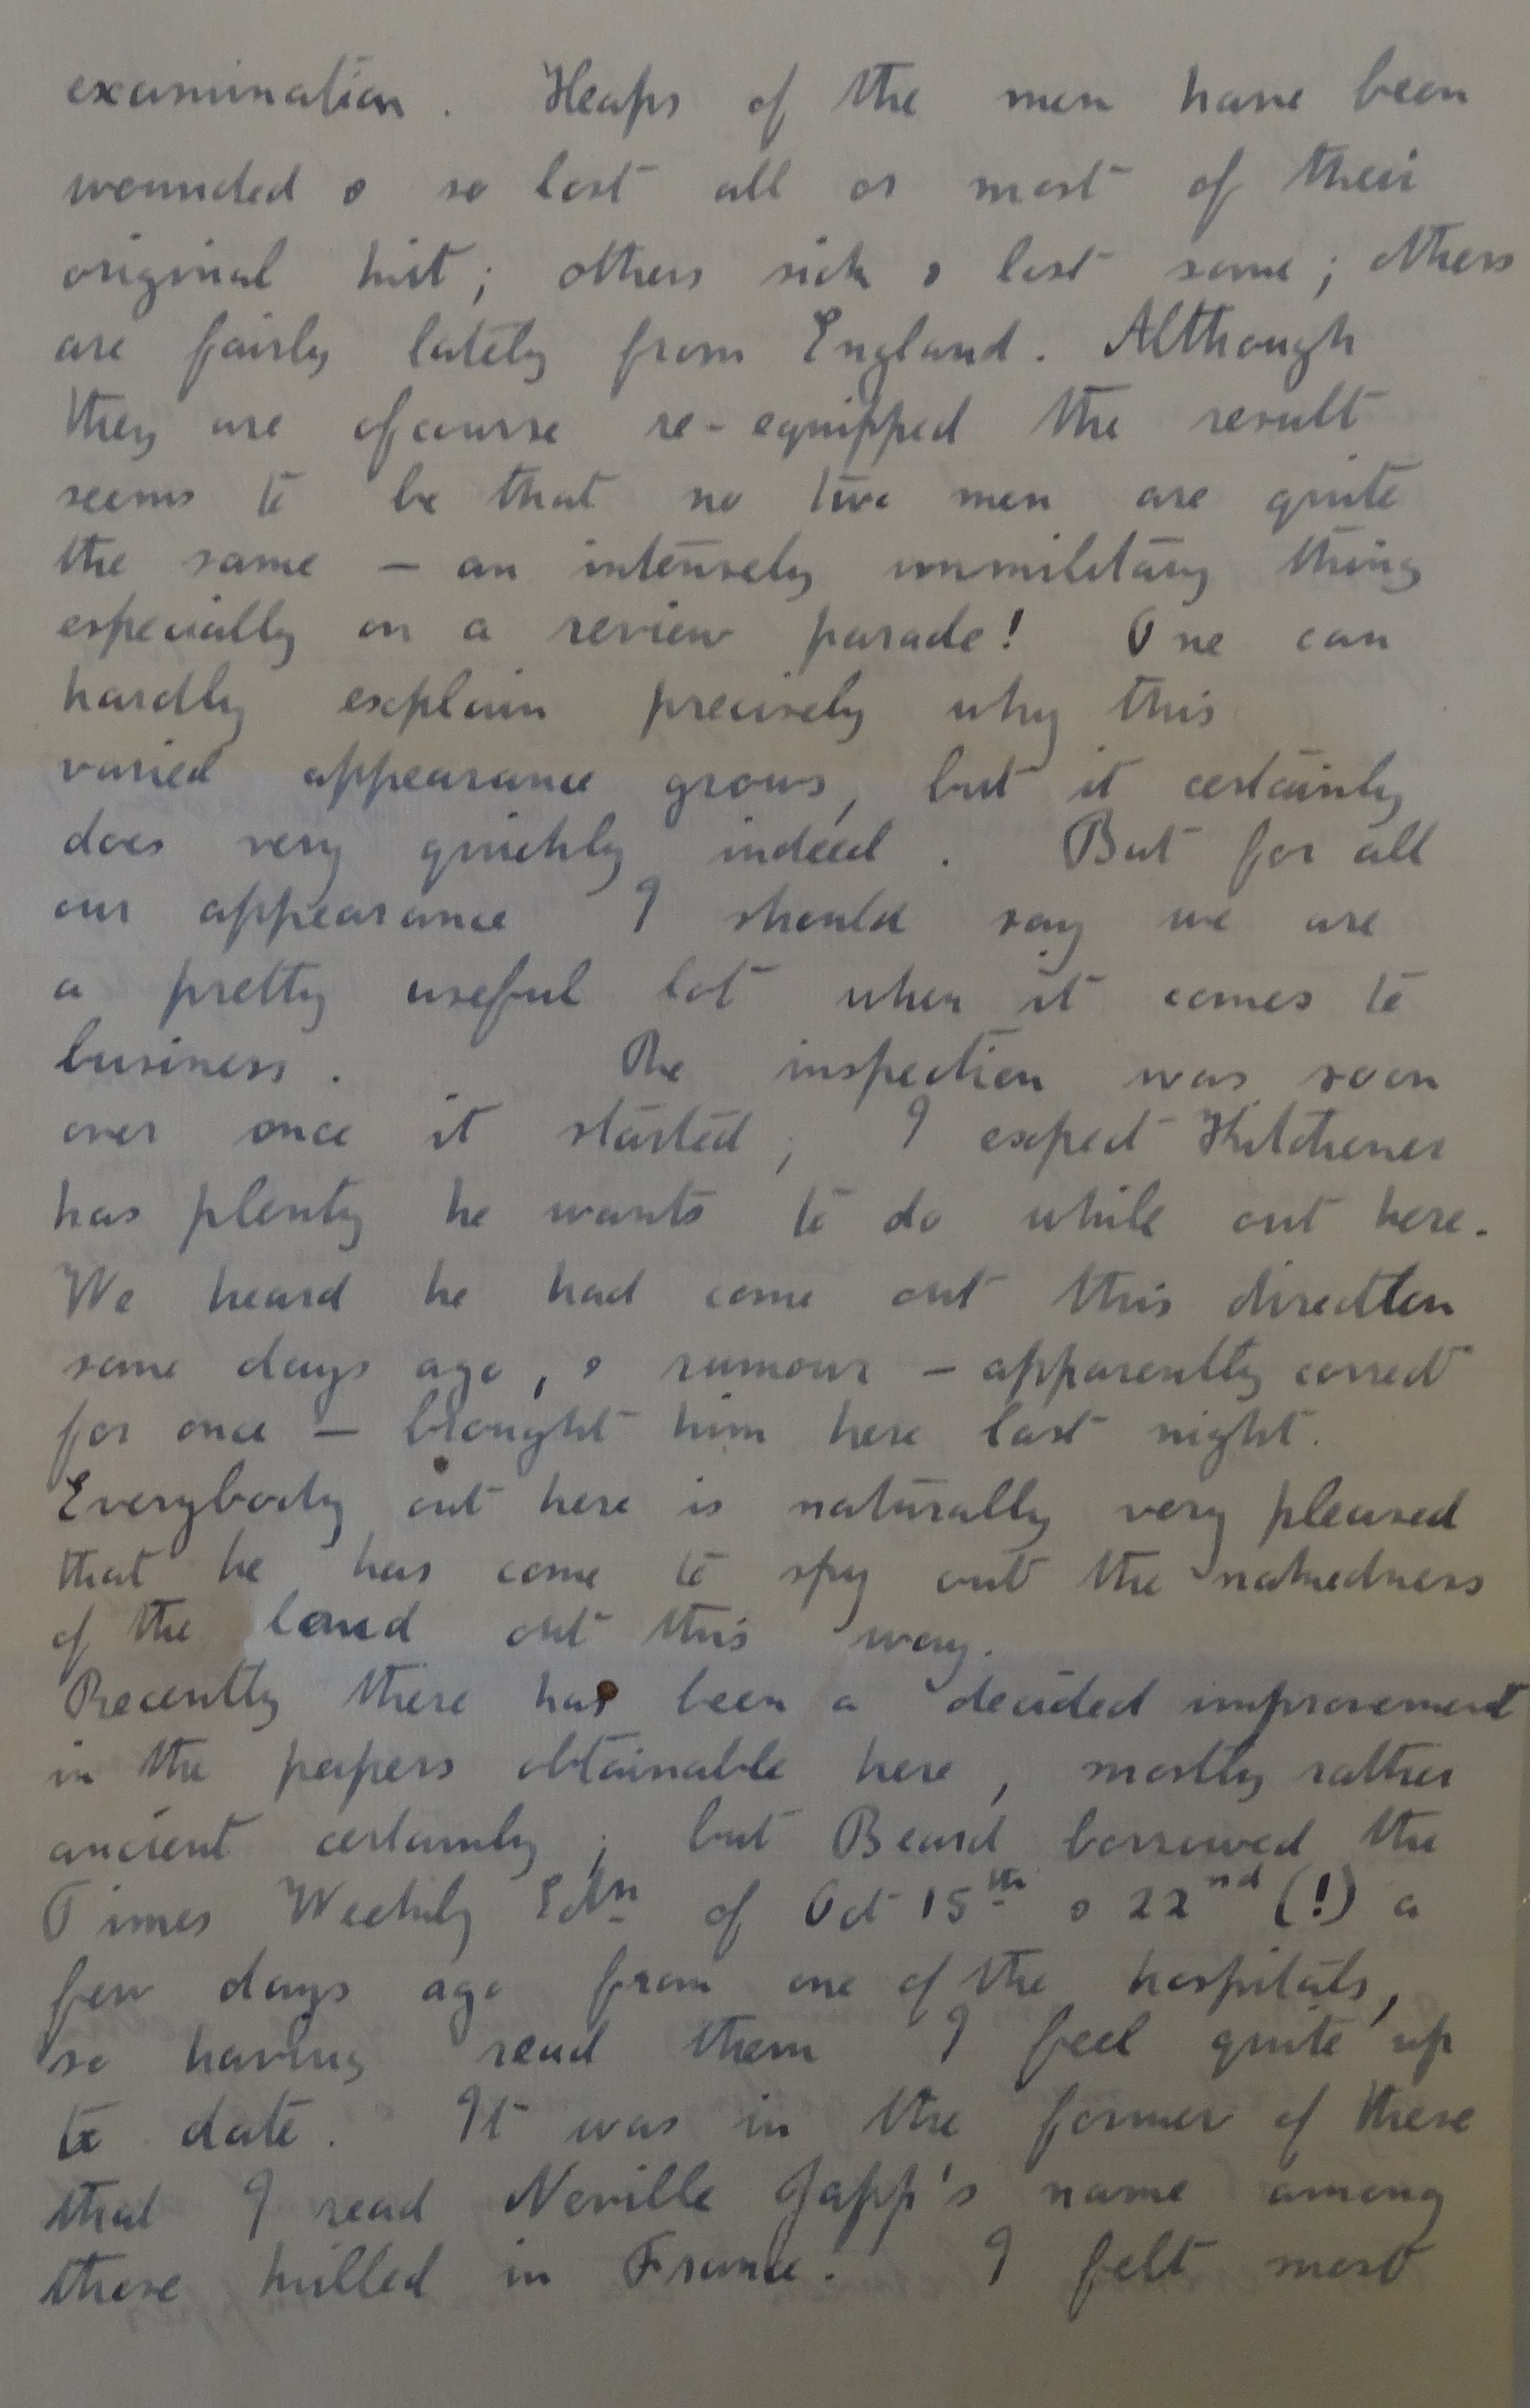 examination. Heaps of the men have been
wounded & so lost all or most of their
original kit; others sick & lost some; others
are fairly lately from England. Although
they are ofcourse re-equipped the result
seems to be that no two men are quite
the same — an intensely unmilitary thing
especially on a review parade! One can
hardly explain precisely why this
varied appearance grows, but it certainly
does very quickly indeed. But for all
our appearance I should say we are
a pretty useful lot when it comes to
business. The inspection was soon
over once it started; I expect Kitchener
has plenty he wants to do while out here.
We heard he had come out this direction
some days ago, & rumour — apparently correct
for once — brought him here last night.
Everybody out here is naturally very pleased
that he has come to spy out the nakedness
of the land out this way.
Recently there has been a decided improvement
in the papers obtainable here, mostly rather
ancient certainly; but Beard borrowed the
Times Weekly Edn of Oct 15th & 22nd (!) a
few days ago from one of the hospitals,
so having read them I feel quite up
to date. It was in the former of these
that I read Neville Japp's name among
those killed in France. I felt most